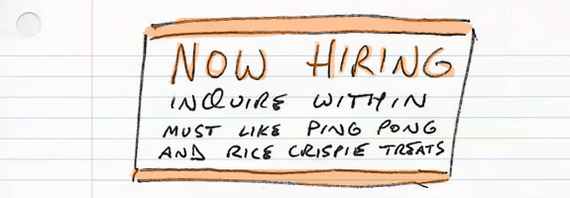 NOW HIRING
INQUIRE WITHIN
MUST LIKE PING PONG
AND RICE CRISPIE TREATS